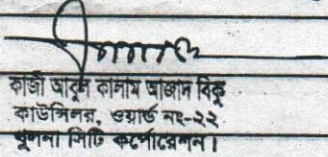 কাজী আবুল কালাম আজাদ বিকু
কাউন্সিলর, ওয়ার্ড নং-২২
খুলনা সিটি কর্পোরেশন।